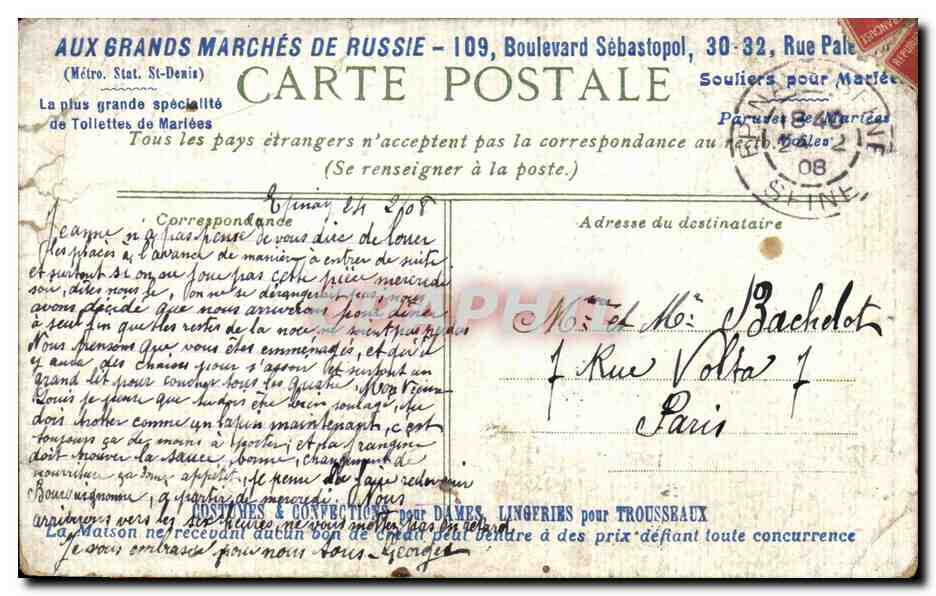 AUX GRANDS MARCHÉS DE RUSSIE - 109, Boulevard Sébastopol, 30-32, Rue Pale
(Métro. Stat. St-Denis)
CARTE POSTALE
Souliers pour Mariées
La plus grande spécialité
de Toilettes de Mariées
Parures de Mariées
Voiles
Tous les pays étrangers n'acceptent pas la correspondance au recto
(Se renseigner à la poste.)
EPINAY SEINE
8 40
24 2
08
SEINE
Epinay 24 2/08
Correspondance
Adresse du destinataire
Jeanne n'a pas pensé de vous dire de louer
les places à l'avance de manière à entrer de suite
et surtout si on ne joue pas cette pièce mercredi
soir, dites nous le, on ne se dérangerait pas, nous
avons décidé que nous arriverons pour dîner
à seul fin que les restes de la noce ne soit pas perdus
Nous pensons que vous êtes emménagés, et qu'il
y aura des chaises pour s'assoir et surtout un
grand lit pour coucher tous les quatre. Mon Vieux
Louis je pense que tu dois être bien soulagé, tu
dois trotter comme un lapin maintenant, c'est
toujours ça de moins à porter; et la frangine
doit trouver la sauce bonne, changement de
nourriture ça donne appétit, je pense la faire redevenir
Bourguignonne, a partir de mercredi. Nous
arriverons vers les six heures, ne vous mettez pas en retard.
Je vous embrasse pour nous tous Georges
Mme et Mr Bachelot
7 Rue Volta 7
Paris
COSTUMES & CONFECTIONS pour DAMES, LINGERIES pour TROUSSEAUX
La Maison ne recevant aucun bon de crédit peut vendre à des prix défiant toute concurrence